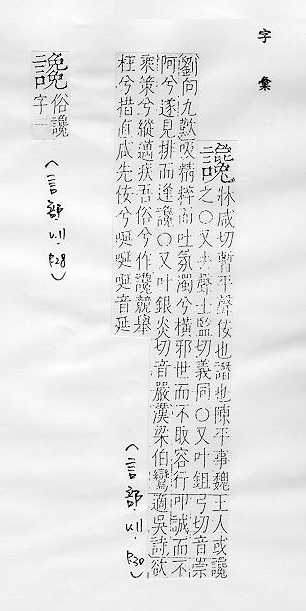 字彙
讒
牀咸切暫平聲佞也譖也陳平事魏王人或讒
之〇又去聲士監切義同〇又叶鉏弓切音崇
劉向九歎吸精粹而吐氛濁兮橫邪世而不取容行叩誠而不
阿兮遂見排而逢讒〇又叶銀炎切音嚴漢梁伯鸞適吳詩欲
乘策兮縱邁疾吾俗兮作讒競舉
枉兮措直咸先佞兮唌唌唌音延
(言部.u11.p30)
䜛
俗讒
字
(言部.u11.p28)